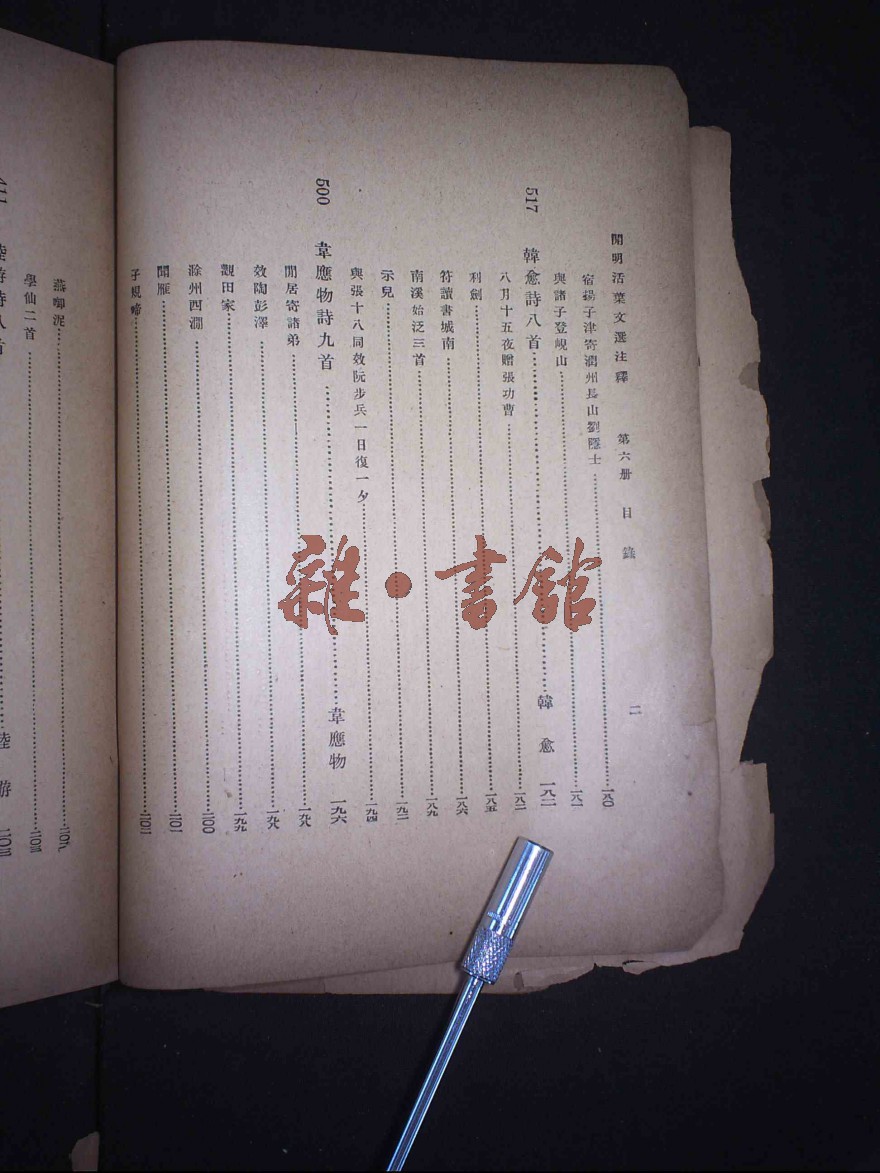 開明活葉文選注釋 第六册 目錄 二
宿揚子津寄潤州長山劉隱士……一八〇
與諸子登峴山……一八一
517 韓愈詩八首……韓愈 一八二
八月十五夜贈張功曹……一八二
利劍……一八五
符讀書城南……一八六
南溪始泛三首……一八九
示兒……一九二
與張十八同效阮步兵一日復一夕……一九四
500 韋應物詩九首……韋應物 一九六
閒居寄諸弟……一九八
效陶彭澤……一九八
觀田家……一九九
滁州西澗……二〇〇
聞雁……二〇一
子規啼……二〇二
燕啣泥……
學仙二首……
陸游詩八首……陸游
雜·書館